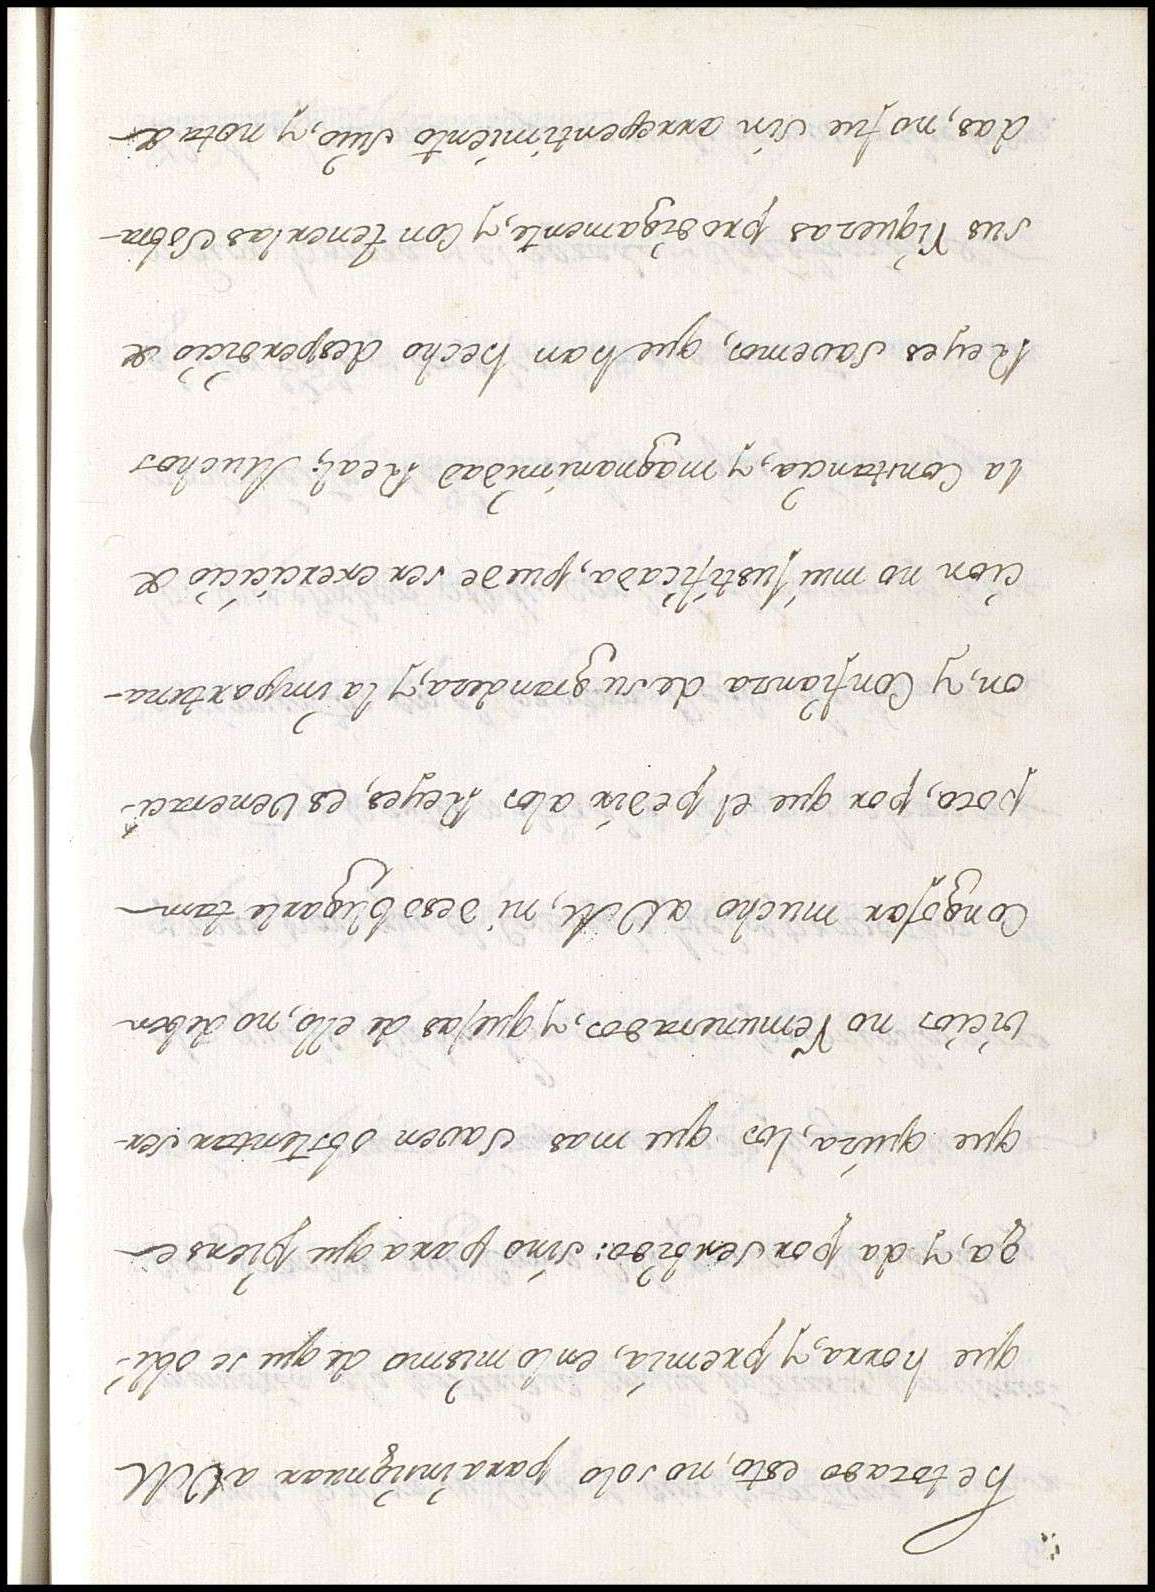 he tocado esto, no solo para insignuar a VM
que honra, y premia, en lo mismo de que se obli-
ga, y da por servido: sino para que piense
que quiza, los que mas saven obstentar ser-
vicios no remunerados, y quejas de ello, no deben
Congojar mucho a VM, ni desobligarle tam-
poco, por que el pedir a los Reyes, es veneraci-
on, y Confianza de su grandeza, y la importuna-
cion no mui justificada, puede ser exercicio de
la Constancia, y magnanimidad Real; Muchos
Reyes savemos, que han hecho desperdicio de
sus riquezas prodigamente, y Con tenerlas sobra-
das, no fue sin arrepentimiento suio, y nota de